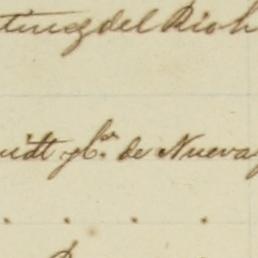 tinez del Rio h
midt y Ca. de Nueva